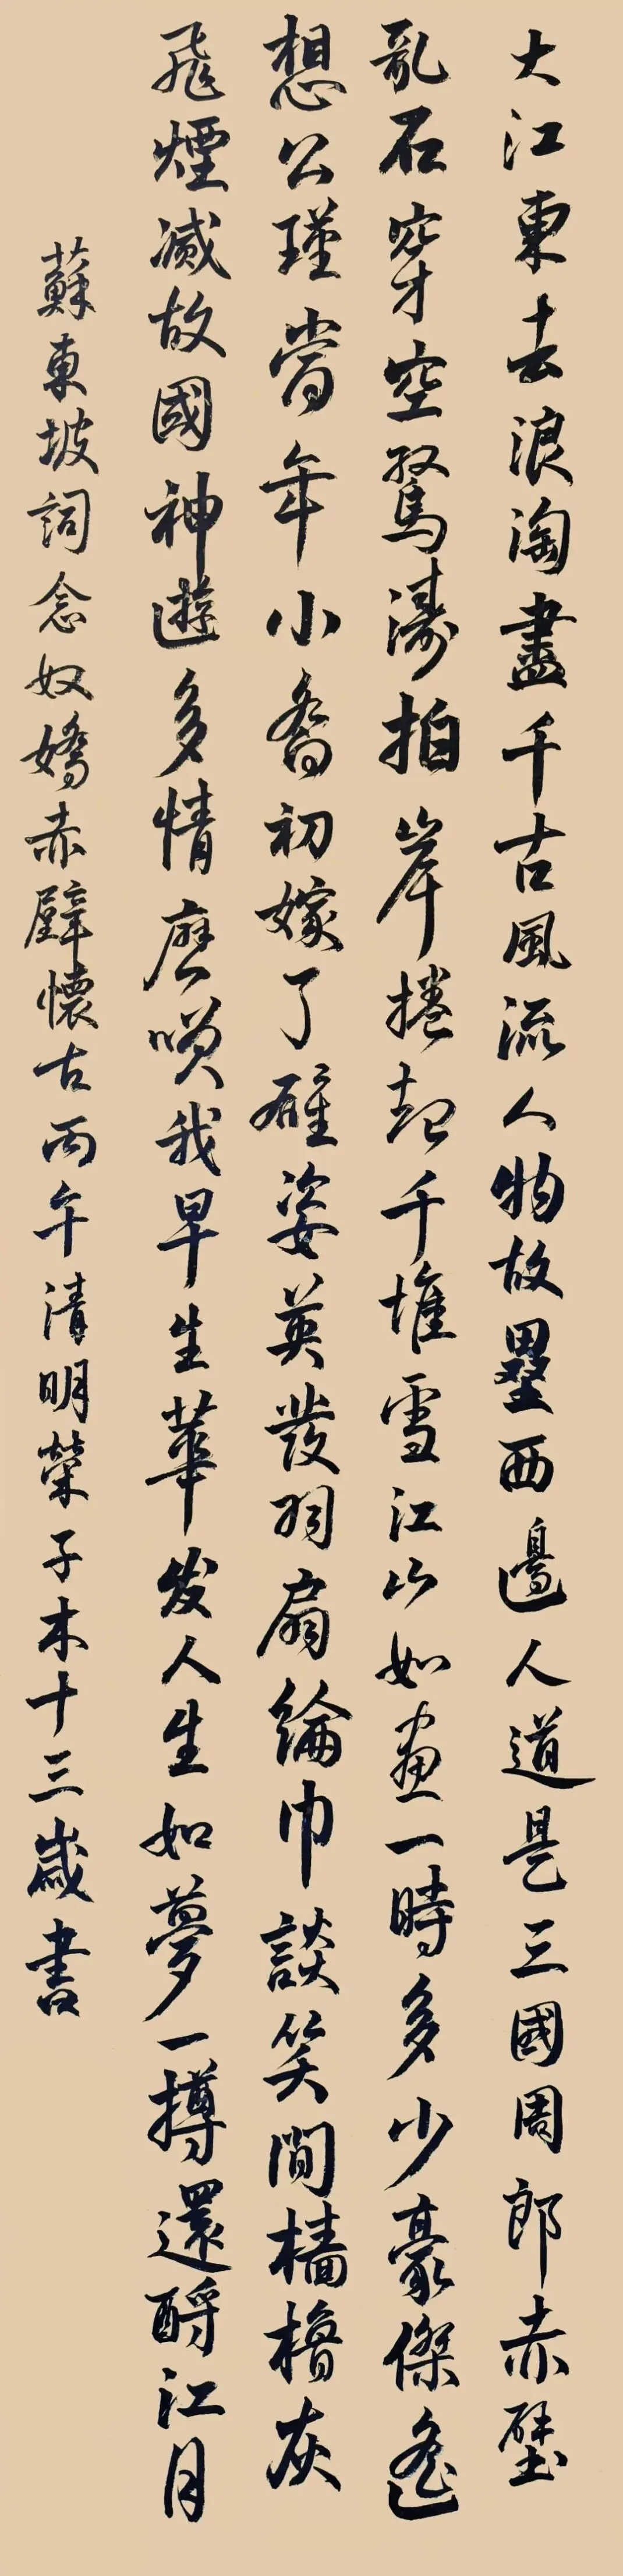 大江東去浪淘盡千古風流人物故壘西邊人道是三國周郎赤壁
亂石穿空驚濤拍岸捲起千堆雪江山如畫一時多少豪傑遙
想公瑾當年小喬初嫁了雄姿英發羽扇綸巾談笑間檣櫓灰
飛煙滅故國神遊多情應笑我早生華发人生如夢一樽還酹江月
蘇東坡詞念奴嬌赤壁懷古丙午清明榮子木十三歲書